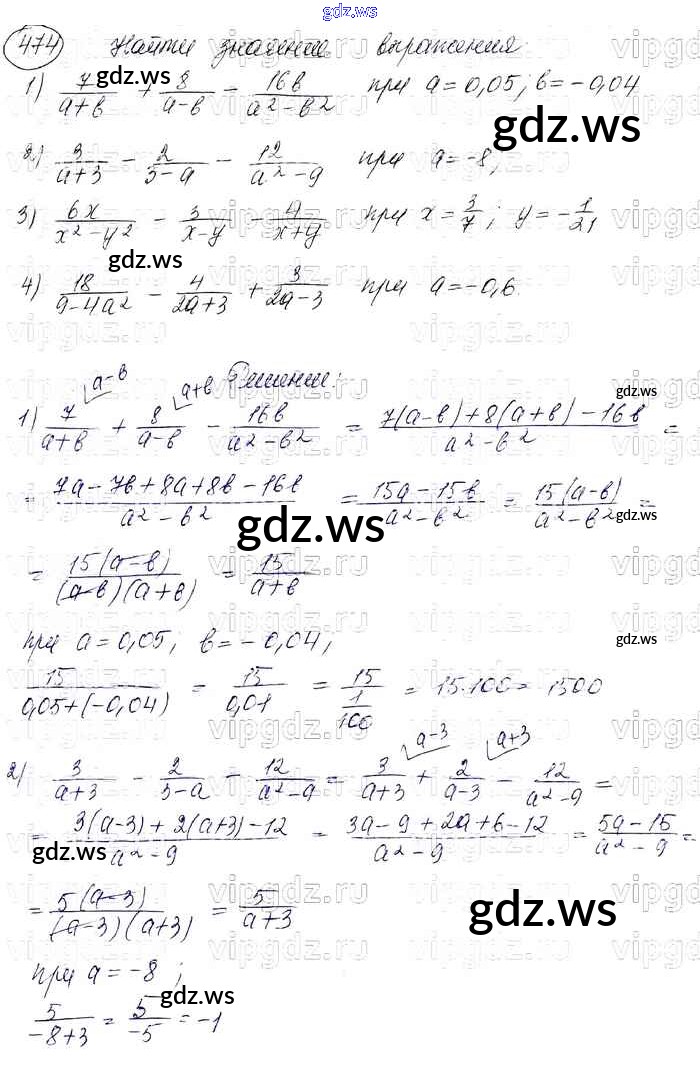 gdz.ws
474 Найти значение выражения
1) 7/(a+b) + 8/(a-b) - 16b/(a²-b²) при a=0,05; b=-0,04
2) 3/(a+3) - 2/(3-a) - 12/(a²-9) при a=-8;
3) 6x/(x²-y²) - 3/(x-y) - 4/(x+y) при x=3/7; y=-1/21
4) 18/(9-4a²) - 4/(2a+3) + 3/(2a-3) при a=-0,6.
Решение:
a-b a+b
1) 7/(a+b) + 8/(a-b) - 16b/(a²-b²) = (7(a-b)+8(a+b)-16b)/(a²-b²) =
= (7a-7b+8a+8b-16b)/(a²-b²) = (15a-15b)/(a²-b²) = 15(a-b)/(a²-b²) =
= 15(a-b)/((a-b)(a+b)) = 15/(a+b)
при a=0,05; b=-0,04;
15/(0,05+(-0,04)) = 15/0,01 = 15/(1/100) = 15·100 = 1500
a-3 a+3
2) 3/(a+3) - 2/(3-a) - 12/(a²-9) = 3/(a+3) + 2/(a-3) - 12/(a²-9) =
= (3(a-3)+2(a+3)-12)/(a²-9) = (3a-9+2a+6-12)/(a²-9) = (5a-15)/(a²-9) =
= 5(a-3)/((a-3)(a+3)) = 5/(a+3)
при a=-8;
5/(-8+3) = 5/(-5) = -1